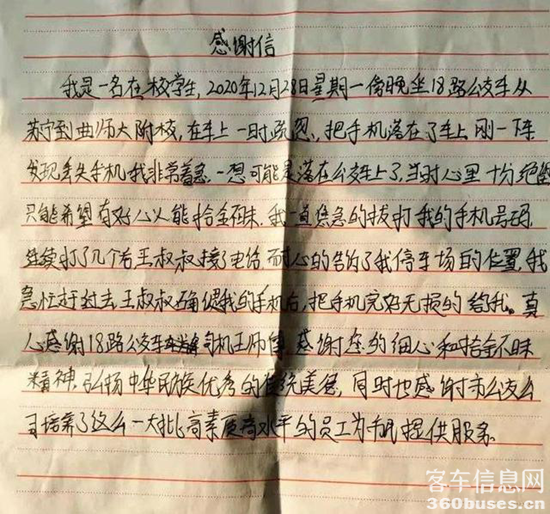 感谢信
我是一名在校学生，2020年12月28日星期一傍晚坐18路公交车从
苏宁到曲师大附校，在车上一时疏忽，把手机落在了车上，刚一下车
发现丢失手机，我非常着急，一想可能是落在公交车上了，当时心里十分绝望
只能希望有好心人能拾金不昧，我一直焦急的拔打我的手机号码
连续打了几个后王叔叔接了电话，耐心的告诉了我停车场的位置，我
急忙赶过去，王叔叔确认我的手机后，把手机完好无损的给我。真
心感谢18路公交车司机王师傅，感谢您的细心和拾金不昧
精神，弘扬中华民族优秀的传统美德，同时也感谢市公交公
司培养了这么一大批高素质高水平的员工为市民提供服务。
客车信息网
360buses.cn